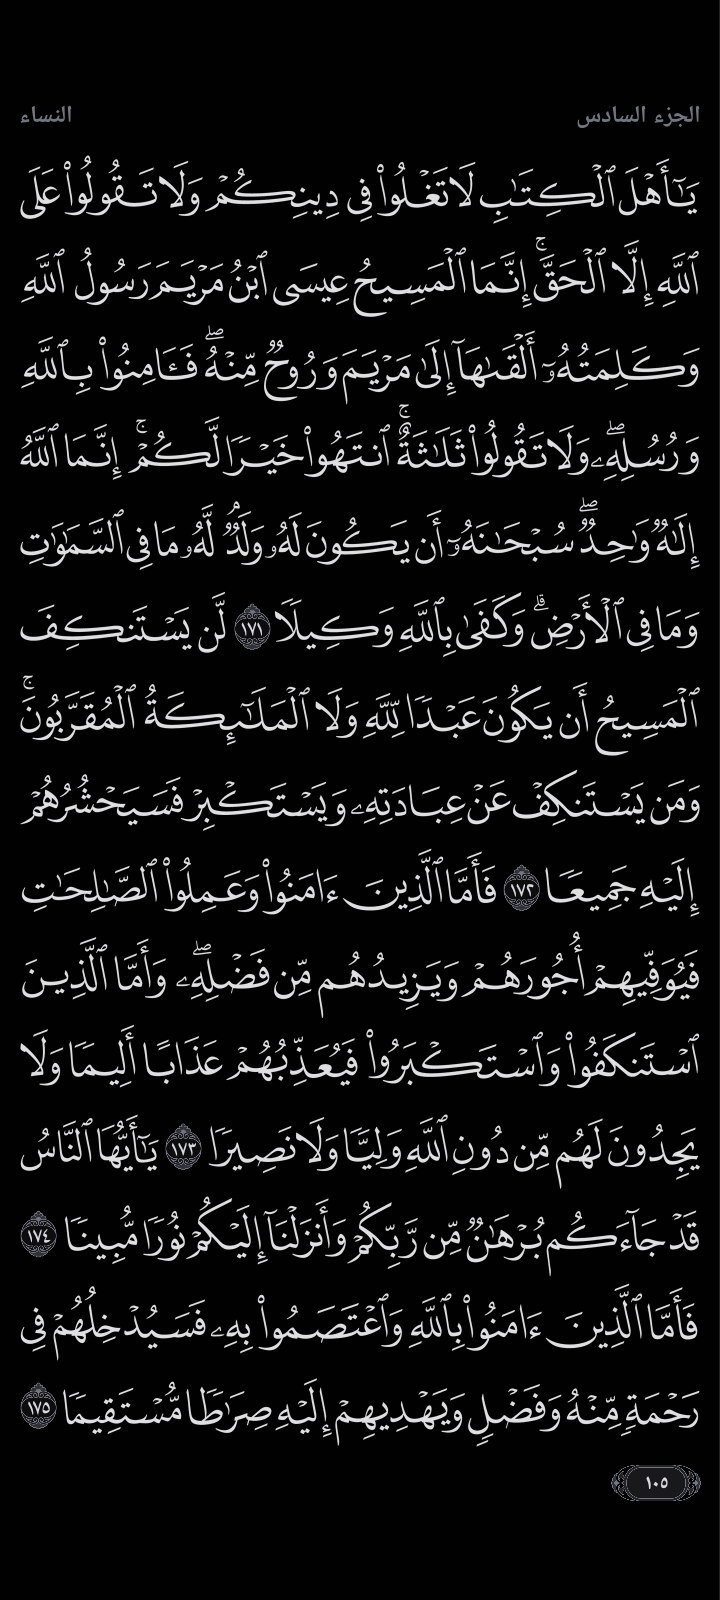 الجزء السادس
النساء
يَـٰٓأَهْلَ ٱلْكِتَـٰبِ لَا تَغْلُوا۟ فِى دِينِكُمْ وَلَا تَقُولُوا۟ عَلَى
ٱللَّهِ إِلَّا ٱلْحَقَّ ۚ إِنَّمَا ٱلْمَسِيحُ عِيسَى ٱبْنُ مَرْيَمَ رَسُولُ ٱللَّهِ
وَكَلِمَتُهُۥٓ أَلْقَىٰهَآ إِلَىٰ مَرْيَمَ وَرُوحٌ مِّنْهُ ۖ فَـَٔامِنُوا۟ بِٱللَّهِ
وَرُسُلِهِۦ ۖ وَلَا تَقُولُوا۟ ثَلَـٰثَةٌ ۚ ٱنتَهُوا۟ خَيْرًا لَّكُمْ ۚ إِنَّمَا ٱللَّهُ
إِلَـٰهٌ وَٰحِدٌ ۖ سُبْحَـٰنَهُۥٓ أَن يَكُونَ لَهُۥ وَلَدٌ ۘ لَّهُۥ مَا فِى ٱلسَّمَـٰوَٰتِ
وَمَا فِى ٱلْأَرْضِ ۗ وَكَفَىٰ بِٱللَّهِ وَكِيلًا ١٧١ لَّن يَسْتَنكِفَ
ٱلْمَسِيحُ أَن يَكُونَ عَبْدًا لِّلَّهِ وَلَا ٱلْمَلَـٰٓئِكَةُ ٱلْمُقَرَّبُونَ ۚ
وَمَن يَسْتَنكِفْ عَنْ عِبَادَتِهِۦ وَيَسْتَكْبِرْ فَسَيَحْشُرُهُمْ
إِلَيْهِ جَمِيعًا ١٧٢ فَأَمَّا ٱلَّذِينَ ءَامَنُوا۟ وَعَمِلُوا۟ ٱلصَّـٰلِحَـٰتِ
فَيُوَفِّيهِمْ أُجُورَهُمْ وَيَزِيدُهُم مِّن فَضْلِهِۦ ۖ وَأَمَّا ٱلَّذِينَ
ٱسْتَنكَفُوا۟ وَٱسْتَكْبَرُوا۟ فَيُعَذِّبُهُمْ عَذَابًا أَلِيمًا وَلَا
يَجِدُونَ لَهُم مِّن دُونِ ٱللَّهِ وَلِيًّا وَلَا نَصِيرًا ١٧٣ يَـٰٓأَيُّهَا ٱلنَّاسُ
قَدْ جَآءَكُم بُرْهَـٰنٌ مِّن رَّبِّكُمْ وَأَنزَلْنَآ إِلَيْكُمْ نُورًا مُّبِينًا ١٧٤
فَأَمَّا ٱلَّذِينَ ءَامَنُوا۟ بِٱللَّهِ وَٱعْتَصَمُوا۟ بِهِۦ فَسَيُدْخِلُهُمْ فِى
رَحْمَةٍ مِّنْهُ وَفَضْلٍ وَيَهْدِيهِمْ إِلَيْهِ صِرَٰطًا مُّسْتَقِيمًا ١٧٥
١٠٥